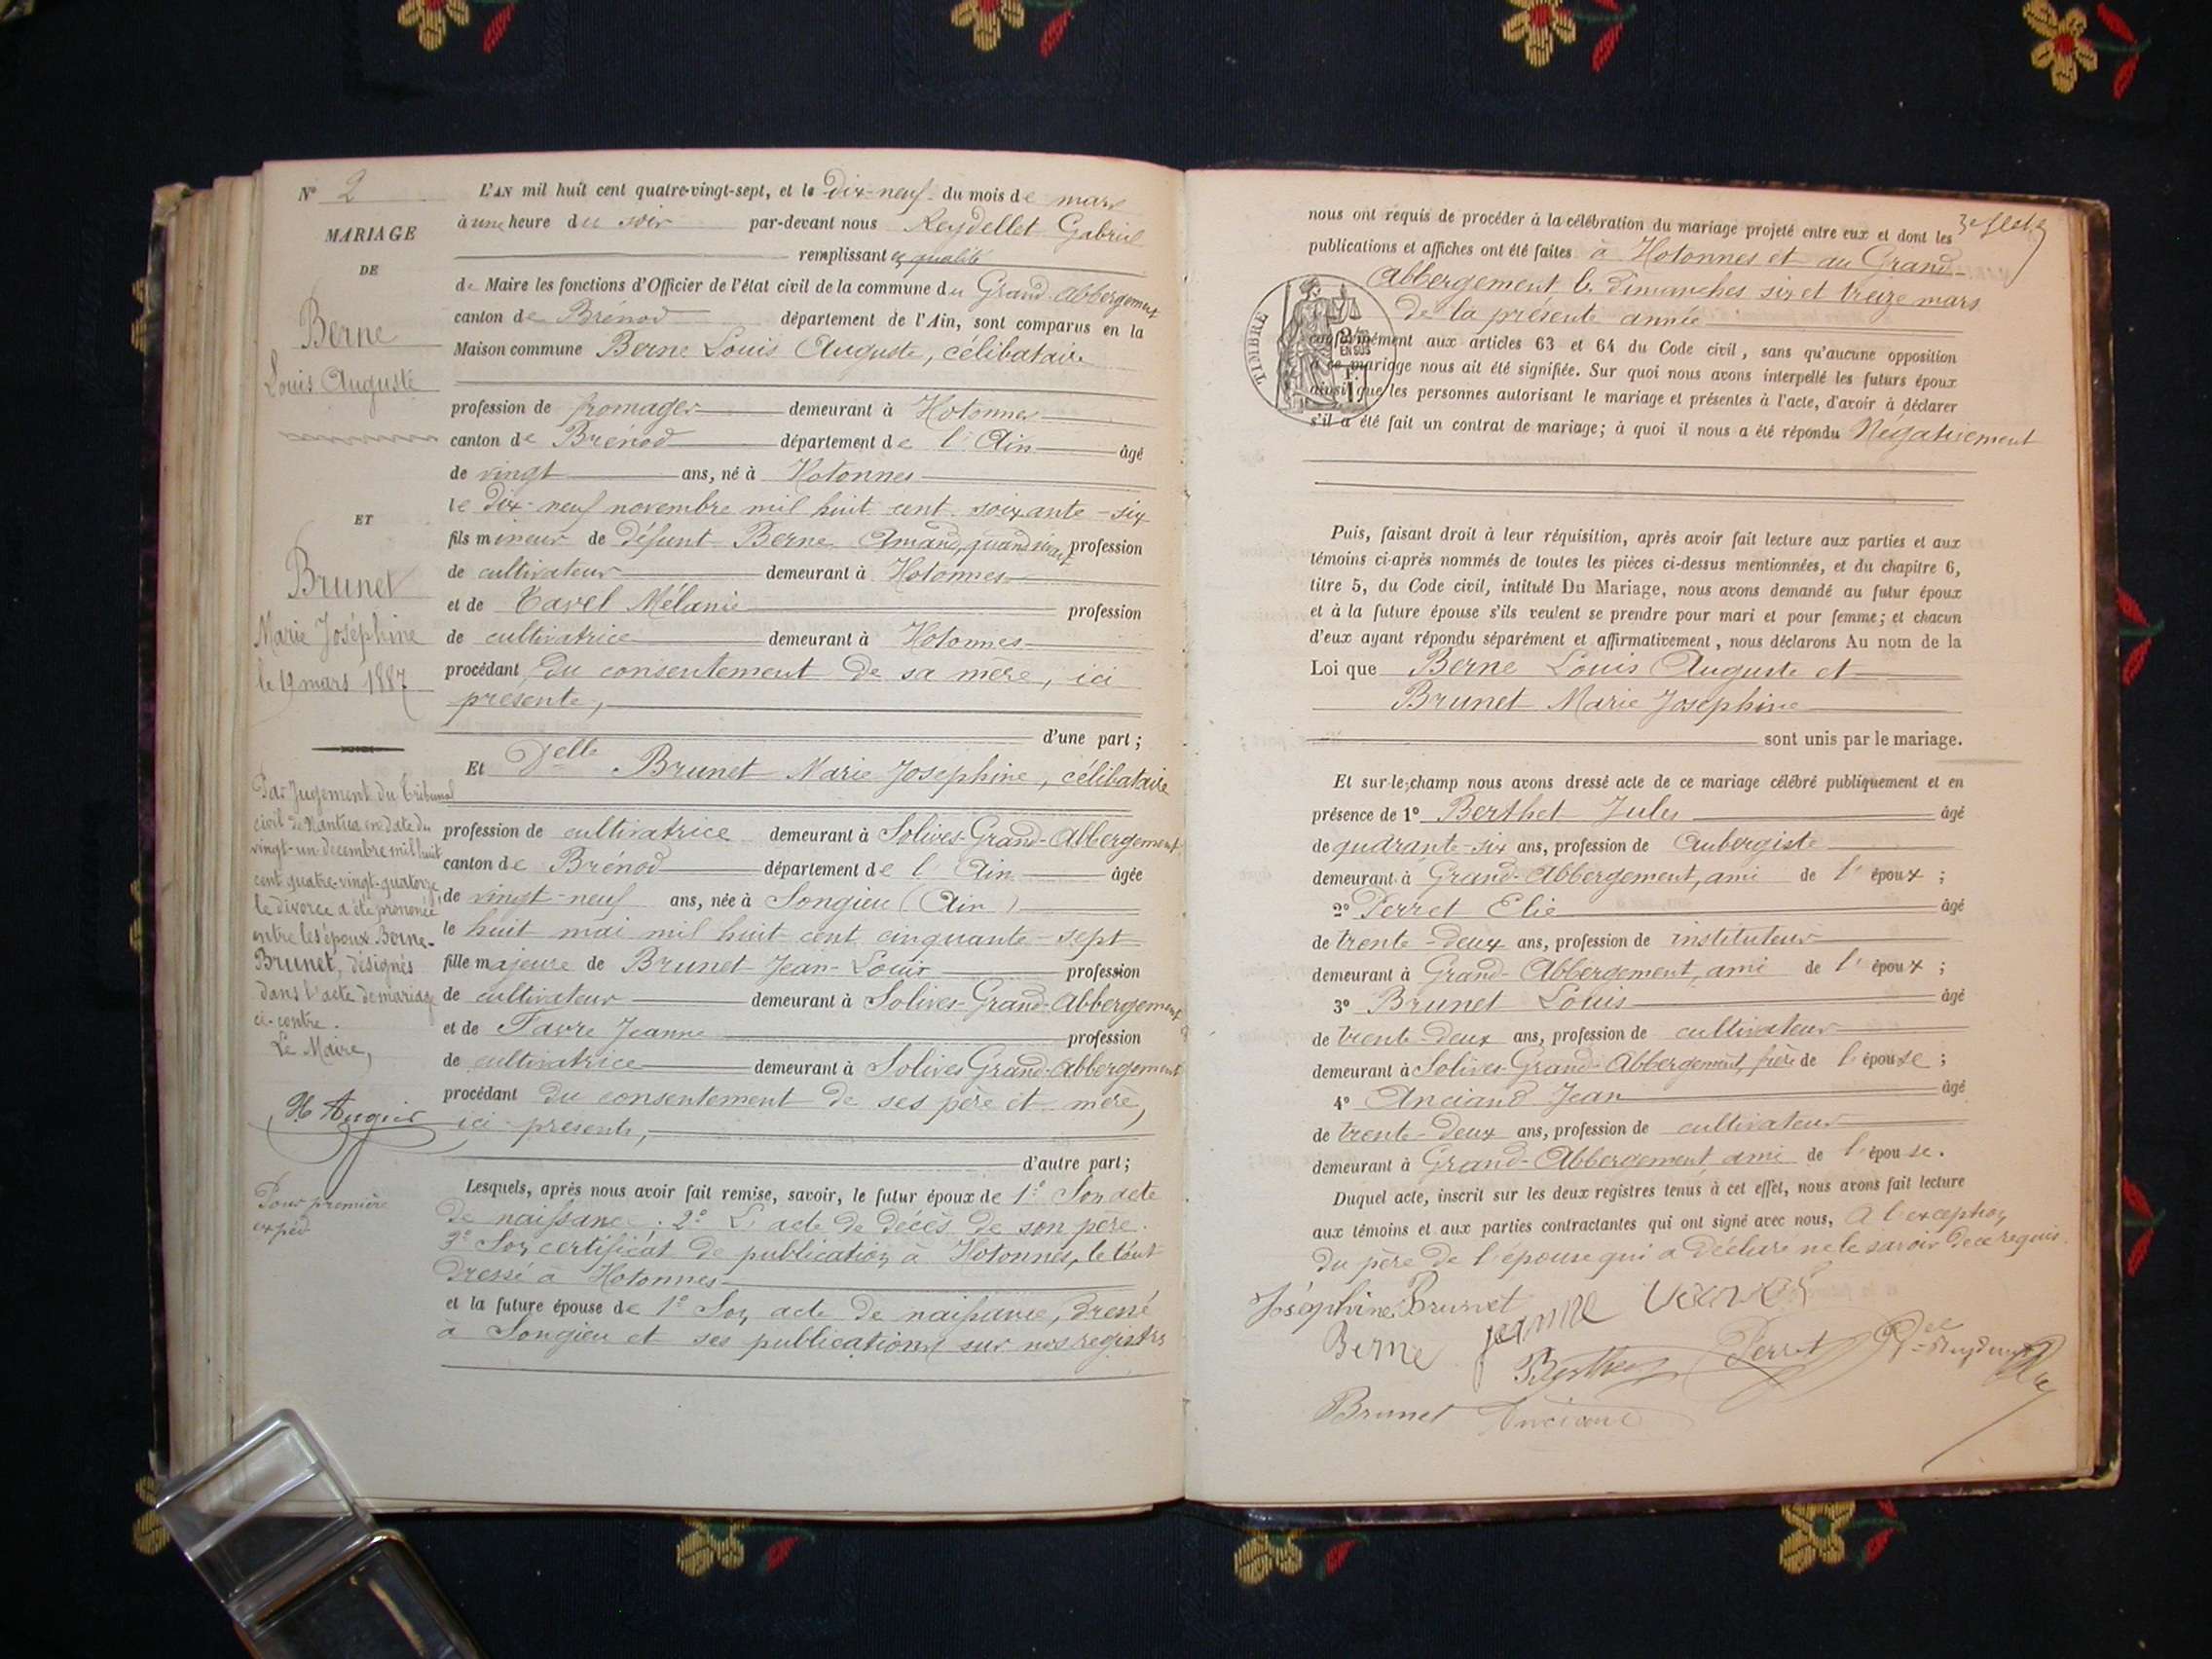 N° 2
MARIAGE
DE
Berne
Louis Auguste
ET
Brunet
Marie Joséphine
le 19 mars 1887
Par Jugement du Tribunal
civil de Nantua en date du
vingt-un décembre mil huit
cent quatre-vingt-quatorze,
le divorce a été prononcé
entre les époux Berne-
Brunet, désignés
dans l'acte de mariage
ci-contre.
Le Maire,
Pour première
expéd.
L'AN mil huit cent quatre-vingt-sept, et le Dix-neuf du mois de mars
à une heure du soir par-devant nous Reydellet Gabriel
remplissant en qualité
de Maire les fonctions d'Officier de l'état civil de la commune du Grand-Abbergement
canton de Brénod département de l'Ain, sont comparus en la
Maison commune Berne Louis Auguste, célibataire
profession de fromager demeurant à Hotonnes
canton de Brénod département de l'Ain âgé
de vingt ans, né à Hotonnes
le dix-neuf novembre mil huit cent soixante-six
fils mineur de défunt Berne Amand, quand vivait profession
de cultivateur demeurant à Hotonnes
et de Tavel Mélanie profession
de cultivatrice demeurant à Hotonnes
procédant du consentement de sa mère, ici
présente,
d'une part;
Et Delle Brunet Marie Josephine, célibataire
profession de cultivatrice demeurant à Solives-Grand-Abbergement
canton de Brénod département de l'Ain âgée
de vingt-neuf ans, née à Songieu (Ain)
le huit mai mil huit cent cinquante-sept
fille majeure de Brunet Jean-Louis profession
de cultivateur demeurant à Solives-Grand-Abbergement
et de Favre Jeanne profession
de cultivatrice demeurant à Solives Grand-Abbergement
procédant du consentement de ses père et mère,
ici présents,
d'autre part;
Lesquels, après nous avoir fait remise, savoir, le futur époux de 1° Son acte
de naissance. 2° L'acte de décès de son père.
3° Son certificat de publication à Hotonnes, le tout
dressé à Hotonnes
et la future épouse de 1° Son acte de naissance, dressé
à Songieu et ses publications sur nos registres
nous ont requis de procéder à la célébration du mariage projeté entre eux et dont les
publications et affiches ont été faites à Hotonnes et au Grand-
Abbergement les dimanches six et treize mars
de la présente année
TIMBRE
2/10
EN SUS
1 F.
conformément aux articles 63 et 64 du Code civil, sans qu'aucune opposition
à ce mariage nous ait été signifiée. Sur quoi nous avons interpellé les futurs époux
ainsi que les personnes autorisant le mariage et présentes à l'acte, d'avoir à déclarer
s'il a été fait un contrat de mariage; à quoi il nous a été répondu Négativement
Puis, faisant droit à leur réquisition, après avoir fait lecture aux parties et aux
témoins ci-après nommés de toutes les pièces ci-dessus mentionnées, et du chapitre 6,
titre 5, du Code civil, intitulé Du Mariage, nous avons demandé au futur époux
et à la future épouse s'ils veulent se prendre pour mari et pour femme; et chacun
d'eux ayant répondu séparément et affirmativement, nous déclarons Au nom de la
Loi que Berne Louis Auguste et
Brunet Marie Josephine
sont unis par le mariage.
Et sur-le-champ nous avons dressé acte de ce mariage célébré publiquement et en
présence de 1° Berthet Jules âgé
de quarante-six ans, profession de Aubergiste
demeurant à Grand-Abbergement, ami de l'époux;
2° Perret Elie âgé
de trente-deux ans, profession de instituteur
demeurant à Grand-Abbergement, ami de l'époux;
3° Brunet Louis âgé
de trente-deux ans, profession de cultivateur
demeurant à Solives-Grand-Abbergement, frère de l'épouse;
4° Anciand Jean âgé
de trente-deux ans, profession de cultivateur
demeurant à Grand-Abbergement, ami de l'épouse.
Duquel acte, inscrit sur les deux registres tenus à cet effet, nous avons fait lecture
aux témoins et aux parties contractantes qui ont signé avec nous, à l'exception
du père de l'épouse qui a déclaré ne le savoir de ce requis.
Joséphine Brunet
Berne Jeanne
Berthet Perret
Brunet Anciand